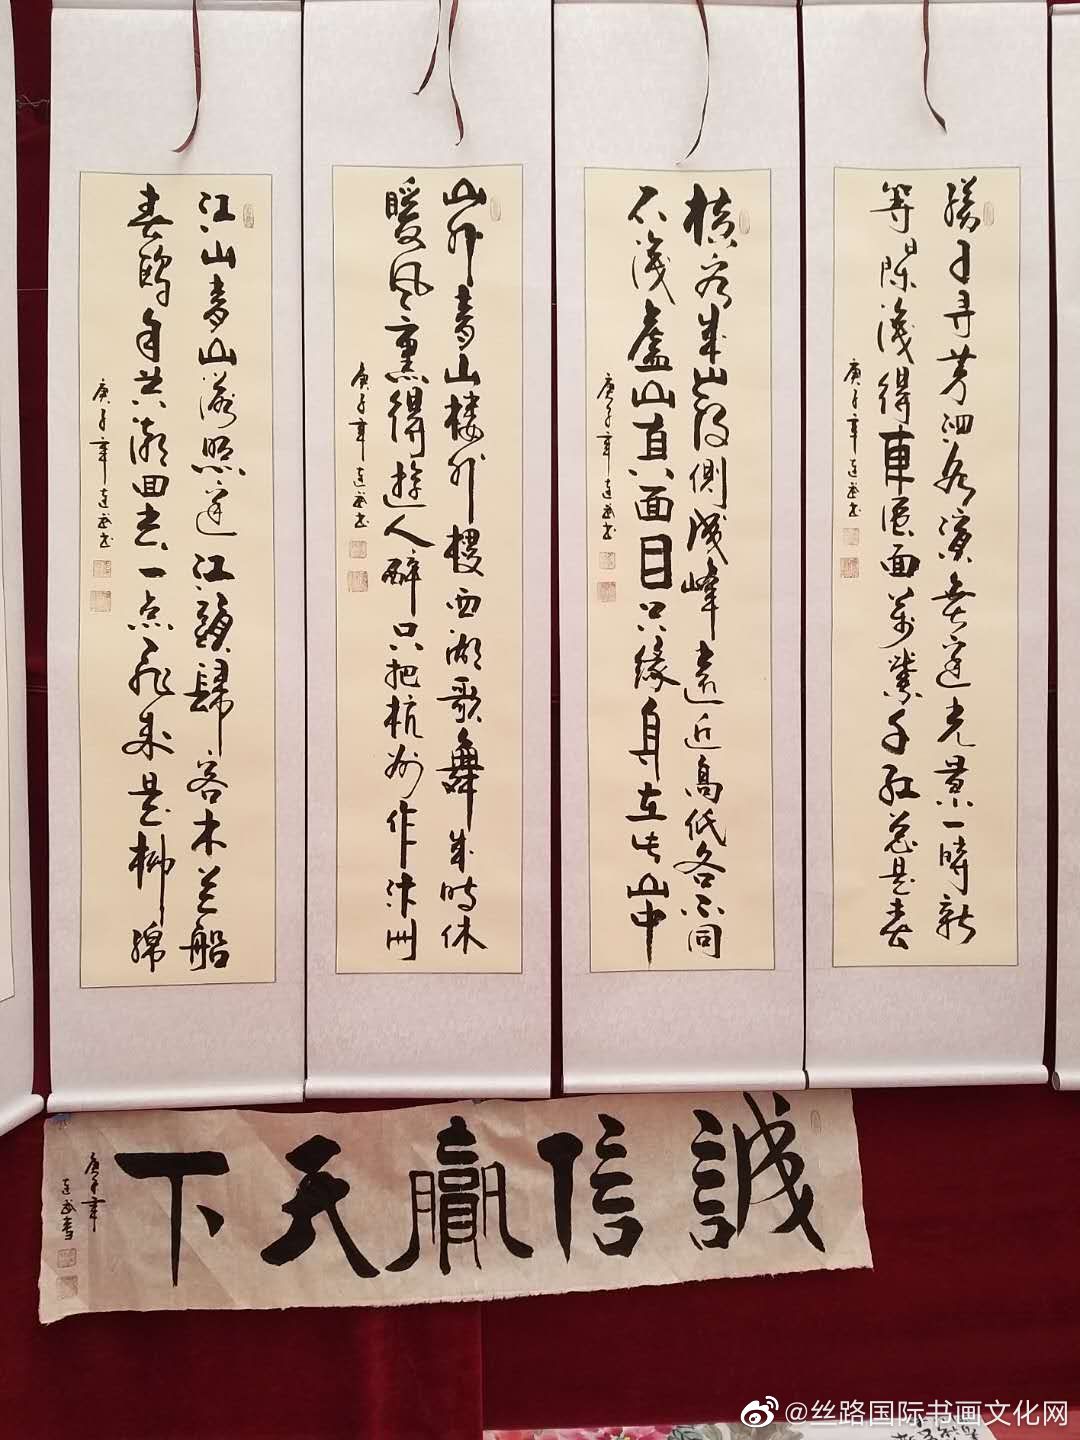 勝日寻芳泗水濱無邊光景一時新
等閑識得東風面萬紫千紅总是春
庚子年
橫看成岭側成峰遠近高低各不同
不識廬山真面目只緣身在此山中
庚子年
山外青山樓外樓西湖歌舞幾時休
暖風熏得遊人醉只把杭州作汴州
庚子年
江山青山落照邊江頭歸客木蘭船
春鷗自共潮回去一点飛來是柳綿
庚子年
誠信贏天下
庚子年
@丝路国际书画文化网